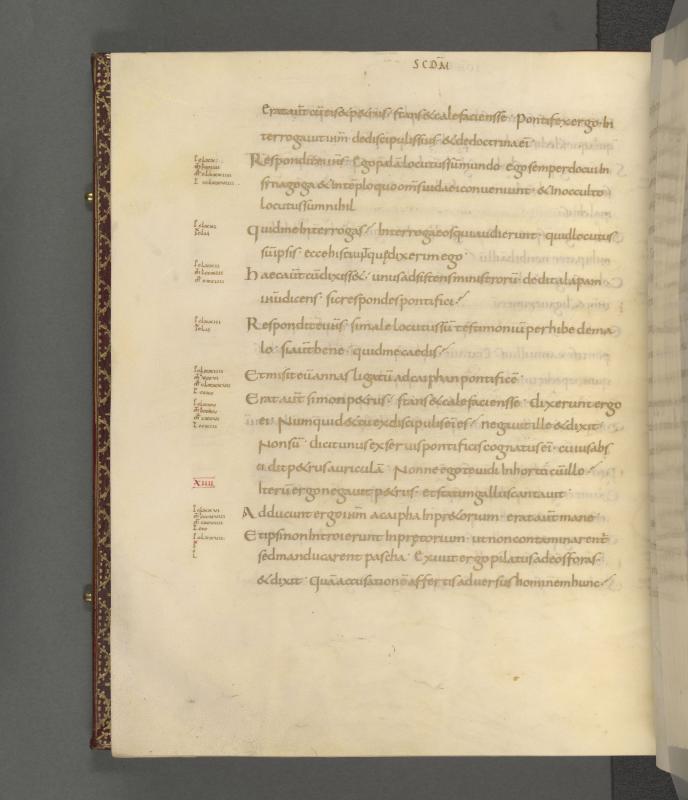 SCDM
Erat aut cu eis & petrus stans & calefaciens se Pontifex ergo in
terrogauit ihm de discipulis suis & de doctrina ei
Respondit ei ihs Ego pala locutus su mundo ego semper docui in
synagoga & in templo quo oms iudaei conueniunt & in occulto
locutus sum nihil
Quid me interrogas Interroga eos qui audierunt quid locutus
su ipsis ecce hi sciunt que dixerim ego
Haec aut cu dixiss& unus adsistens ministroru dedit alapam
ihu dicens sic respondes pontifici
Respondit ei ihs si male locutus su testimoniu perhibe de ma
lo si aut bene quid me caedis
Et misit eu annas ligatu ad caiphan pontifice
Erat aut simon petrus stans & calefaciens se dixerunt ergo
ei Numquid & tu ex discipulis ei es negauit ille & dixit
Non su dicit unus ex seruis pontificis cognatus ei cuius abs
cidit petrus auricula Nonne ego te uidi in horto cu illo
XIIII
Iteru ergo negauit petrus et statim gallus cantauit
Adducunt ergo ihm a caipha in pr&orium erat aut mane
Et ipsi non introierunt in pretorium ut non contaminarent
sed manducarent pascha Exiuit ergo pilatus ad eos foras
& dixit Qua accusatione affertis aduersus hominem hunc